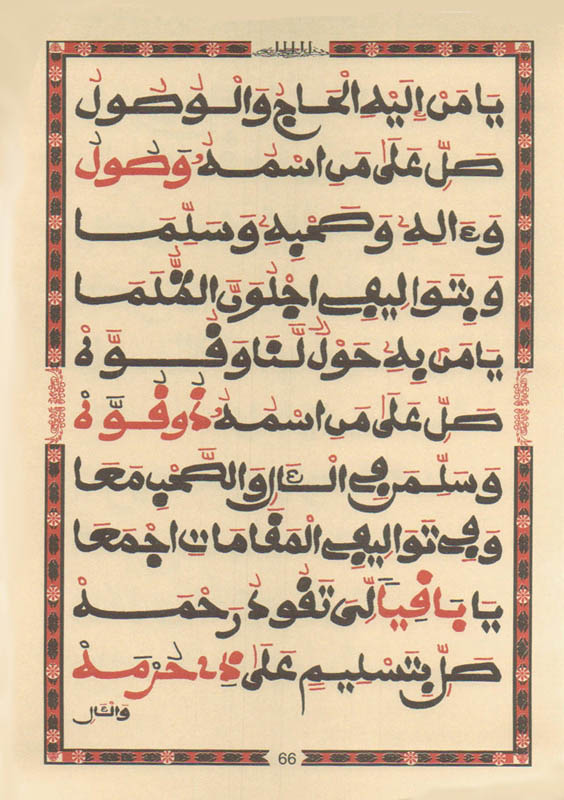 يَا مَنْ إِلَيْهِ الْحَاجُ وَالْوُصُولُ
صَلِّ عَلَى مَنِ اسْمُهُ وَصُولُ
وَءَالِهِ وَصَحْبِهِ وَسَلِّمَا
وَبِتَوَالِيفِي اجْلُوَنَّ الظُّلَمَا
يَا مَنْ بِهِ حَوْلٌ لَّنَا وَقُوَّهْ
صَلِّ عَلَى مَنِ اسْمُهُ ذُو قُوَّهْ
وَسَلِّمَنْ فِي الْـَٔالِ وَالصَّحْبِ مَعَا
وَفِي تَوَالِيفِي الْمَقَامَاتِ اجْمَعَا
يَا بَاقِيًا لِّي تَقُودُ رَحْمَهْ
صَلِّ بِتَسْلِيمٍ عَلَى ذِي حُرْمَهْ
وَالْـَٔالِ
66